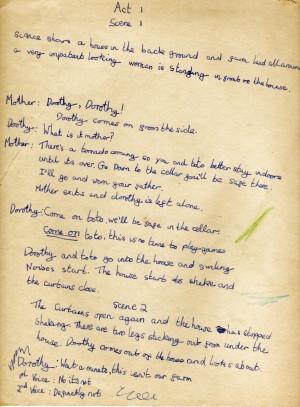 Act 1
Scene 1
Scence shows a house in the back ground and farm land all around
a very impatient looking woman is standing in front of the house.
Mother: Dorothy, Dorothy!
Dorothy comes on from the side.
Dorothy: What is it mother?
Mother: There's a tornado coming so you and toto better stay indoors
until its over. Go Down to the cellar you'll be safe there.
I'll go and warn your father.
Mother exits and dorothy is left alone.
Dorothy: Come on toto, we'll be safe in the cellar.
Come on toto, this is no time to play games
Dorothy and toto go into the house and
Noises start. The house starts to shake and
the curtains close
scene 2
The Curtains open again and the house has stopped
shaking. There are two legs sticking out from under the
house. Dorothy comes out of the house and looks about.
Dorothy: Wait a minute, this isn't our farm
1st Voice: No its not
2nd Voice: Definetly not